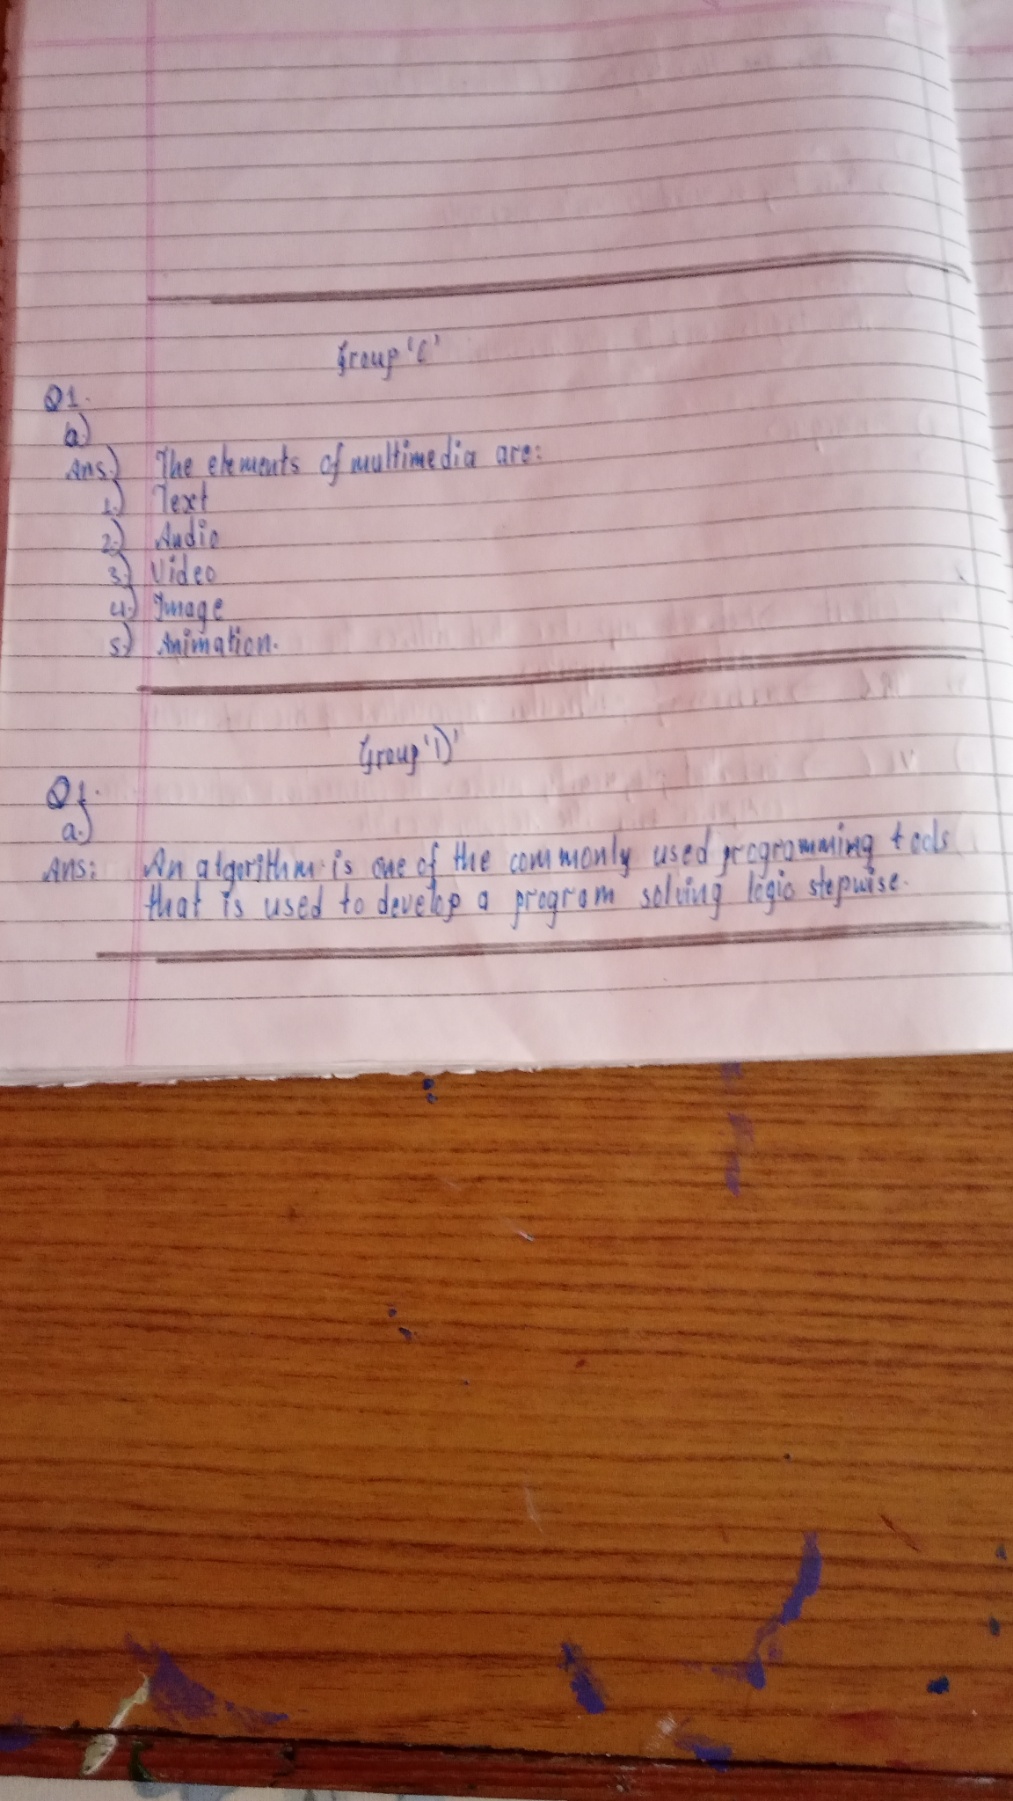 Group 'C'
Q1.
a)
Ans:) The elements of multimedia are:
1.) Text
2.) Audio
3.) Video
4.) Image
5.) Animation.
Group 'D'
Q1.
a.)
Ans: An algorithm is one of the commonly used programming tools
that is used to develop a program solving logic stepwise.